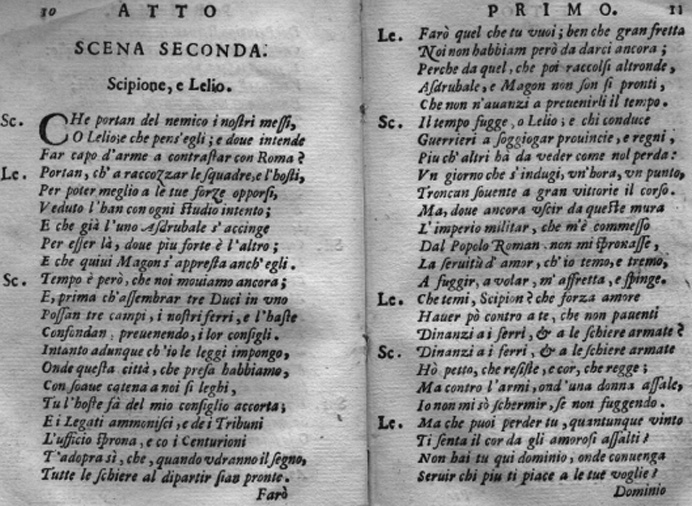 10 ATTO
SCENA SECONDA.
Scipione, e Lelio.
Sc. CHe portan del nemico i noſtri meſſi,
O Lelio; e che pens'egli; e doue intende
Far capo d'arme a contraſtar con Roma?
Le. Portan, ch' a raccozzar le ſquadre, e l'hoſti,
Per poter meglio a le tue forze opporſi,
Veduto l'han con ogni ſtudio intento;
E che già l'uno Aſdrubale s' accinge
Per eſſer là, doue piu forte è l'altro;
E che quiui Magon s'appreſta anch' egli.
Sc. Tempo è però, che noi mouiamo ancora;
E, prima ch'aſſembrar tre Duci in vno
Poſſan tre campi, i noſtri ferri, e l'haſte
Confondan, preuenendo, i lor conſigli.
Intanto adunque ch'io le leggi impongo,
Onde queſta città, che preſa habbiamo,
Con ſoaue catena a noi ſi leghi,
Tu l'hoſte fà del mio conſiglio accorta;
E i Legati ammoniſci, e de i Tribuni
L'ufficio ſprona, e co i Centurioni
T'adopra sì, che, quando vdranno il ſegno,
Tutte le ſchiere al dipartir ſian pronte.
Farò
PRIMO. 11
Le. Farò quel che tu vuoi; ben che gran fretta
Noi non habbiam però da darci ancora;
Perche da quel, che poi raccolſi altronde,
Aſdrubale, e Magon non ſon ſi pronti,
Che non n'auanzi a preuenirli il tempo.
Sc. Il tempo fugge, o Lelio; e chi conduce
Guerrieri a ſoggiogar prouincie, e regni,
Piu ch' altri hà da veder come nol perda:
Vn giorno che s'indugi, vn'hora, vn punto,
Troncan ſouente a gran vittorie il corſo.
Ma, doue ancora vſcir da queſte mura
L' imperio militar, che m'è commeſſo
Dal Popolo Roman, non mi ſpronaſſe,
La ſeruitù d' amor, ch' io temo, e tremo,
A fuggir, a volar, m' affretta, e ſpinge.
Le. Che temi, Scipion? che forza amore
Hauer pò contro a te, che non pauenti
Dinanzi a i ferri, & a le ſchiere armate?
Sc. Dinanzi a i ferri, & a le ſchiere armate
Hò petto, che reſiſte, e cor, che regge;
Ma contro l'armi, ond' una donna aſſale,
Io non mi sò ſchermir, ſe non fuggendo.
Le. Ma che puoi perder tu, quantunque vinto
Ti ſenta il cor da gli amoroſi aſſalti?
Non hai tu qui dominio, onde conuenga
Seruir chi piu ti piace a le tue voglie?
Dominio